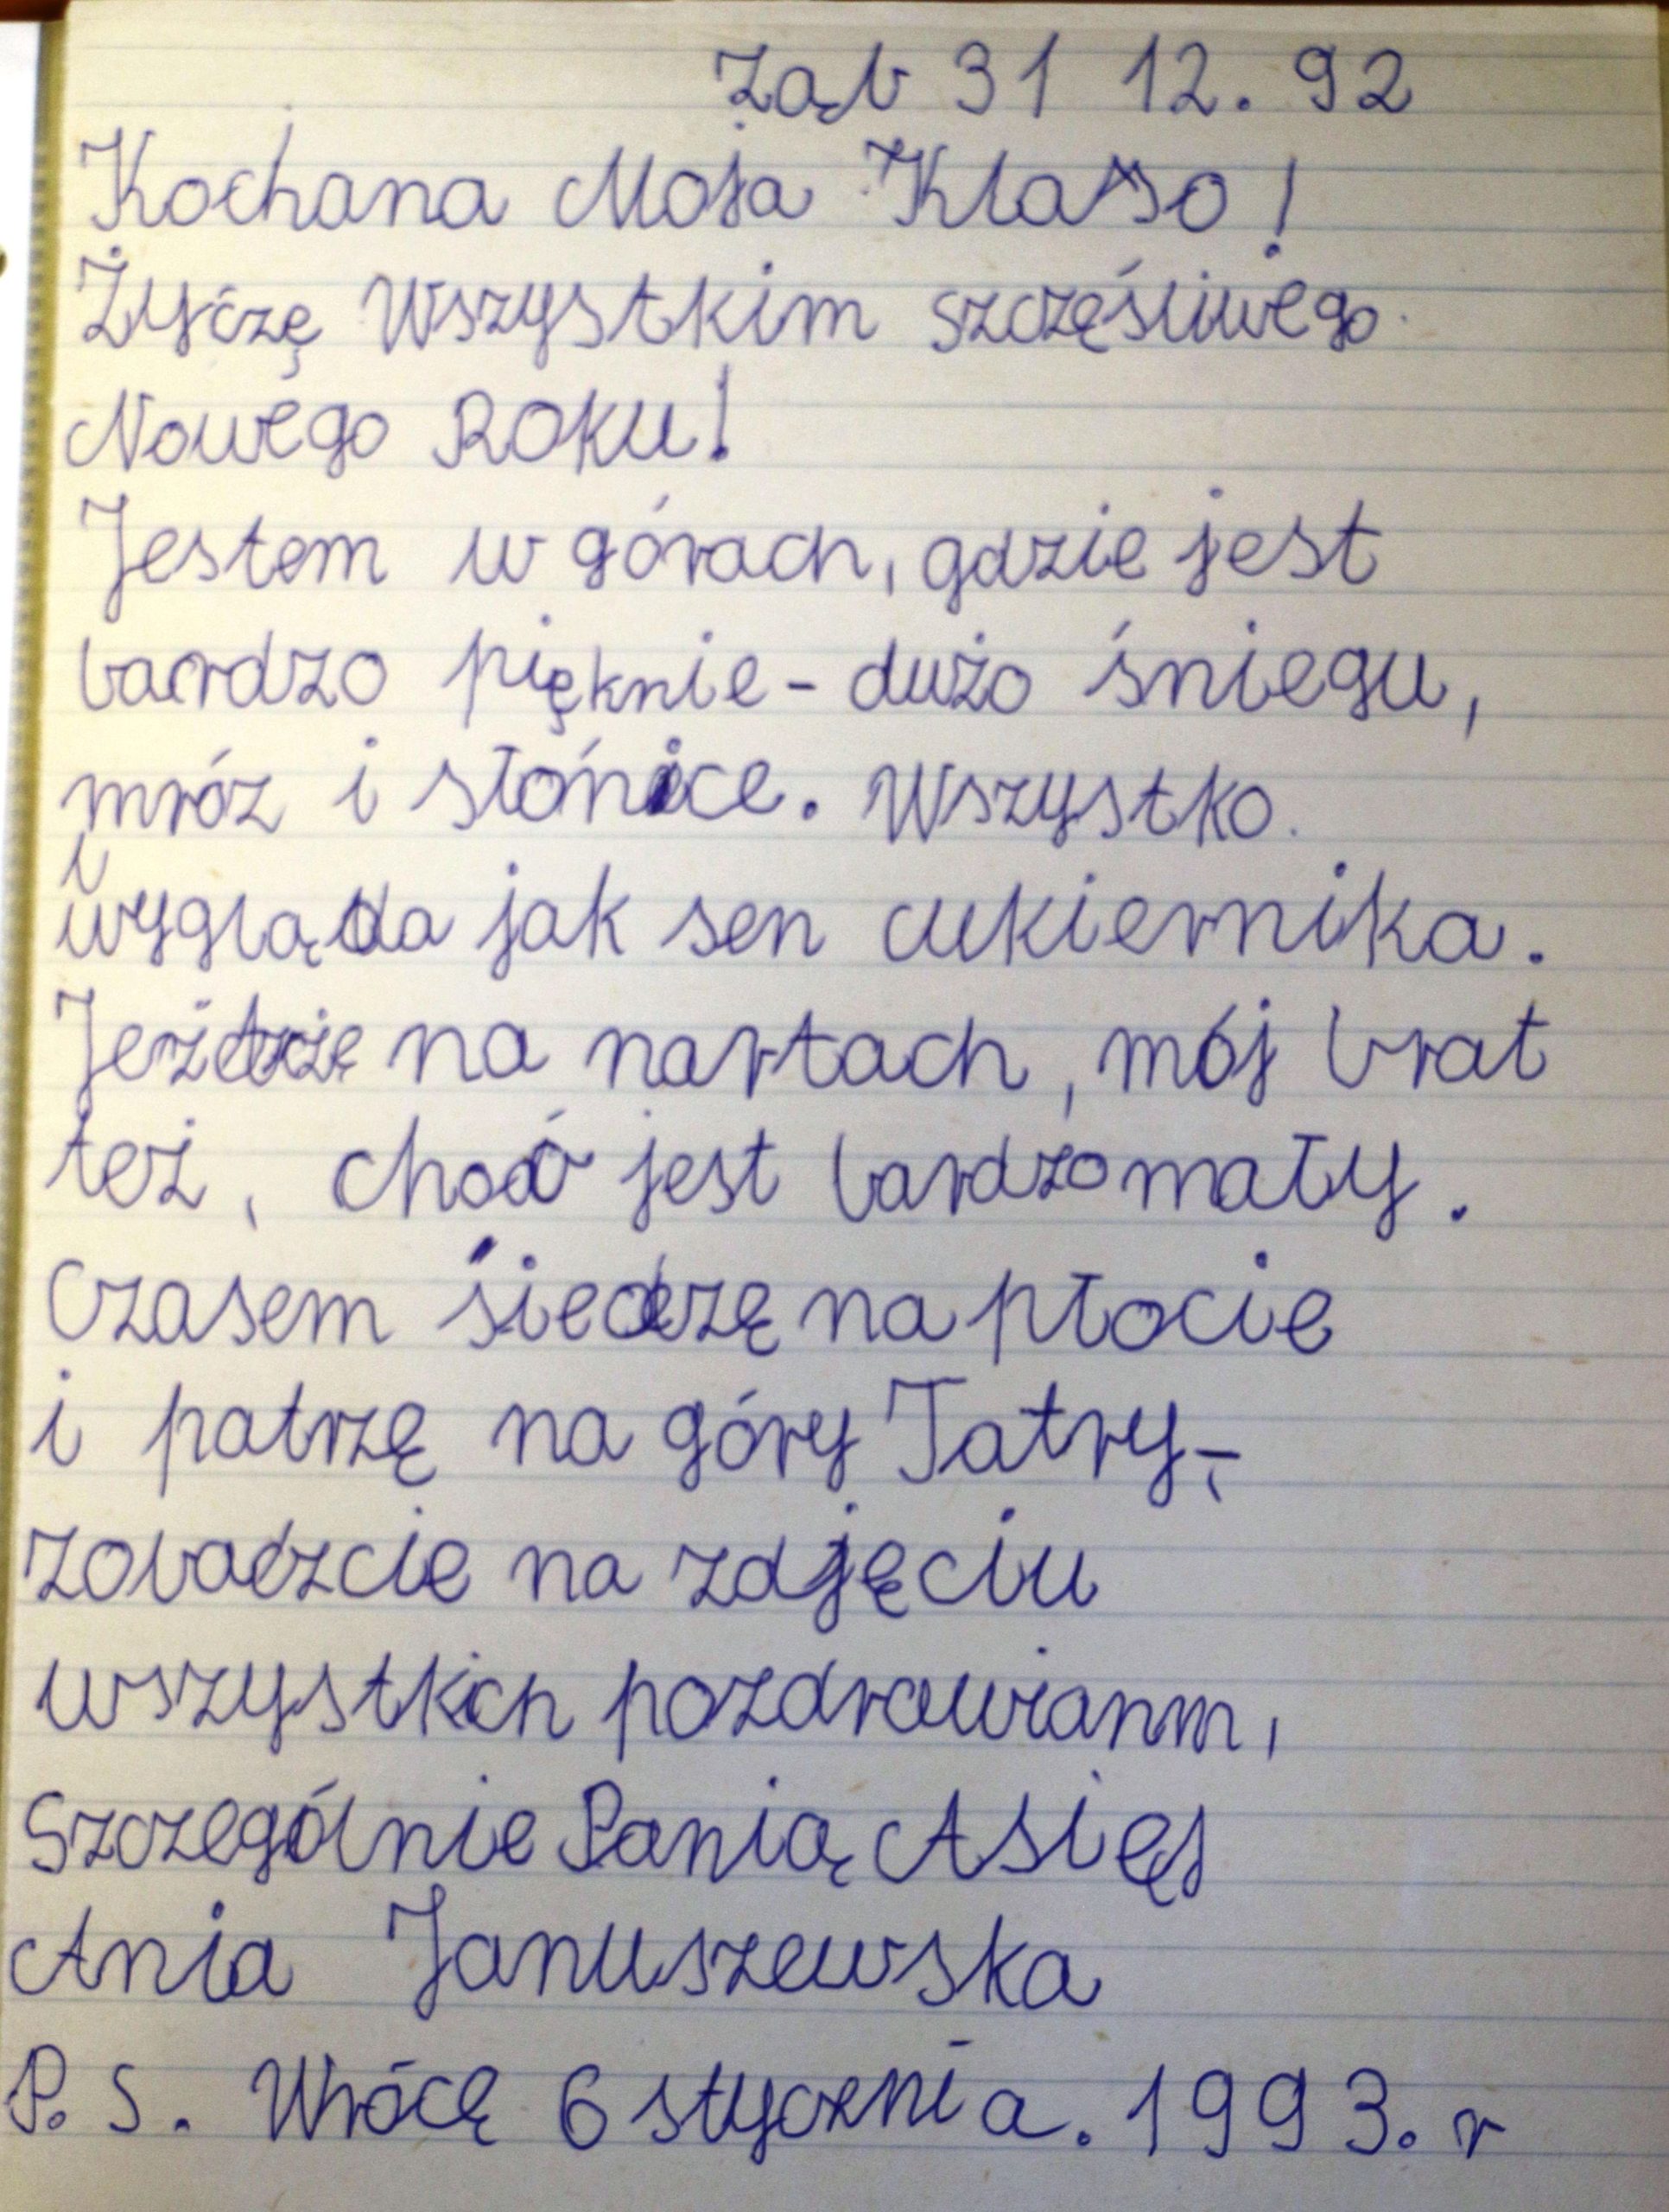 Ząb 31 12. 92
Kochana Moja Klaso!
Życzę Wszystkim szczęśliwego
Nowego Roku!
Jestem w górach, gdzie jest
bardzo pięknie - dużo śniegu,
mróz i słońce. Wszystko
i
wygląda jak sen cukiernika.
Jeżdżę na nartach, mój brat
też, choć jest bardzo mały.
Czasem siedzę na płocie
i patrzę na góry Tatry,-
zobadzcie na zdjęciu
wszystkich pozdrawianm,
Szczególnie Panią Asię
Ania Januszewska
P. S. Wrócę 6 stycznia. 1993. r